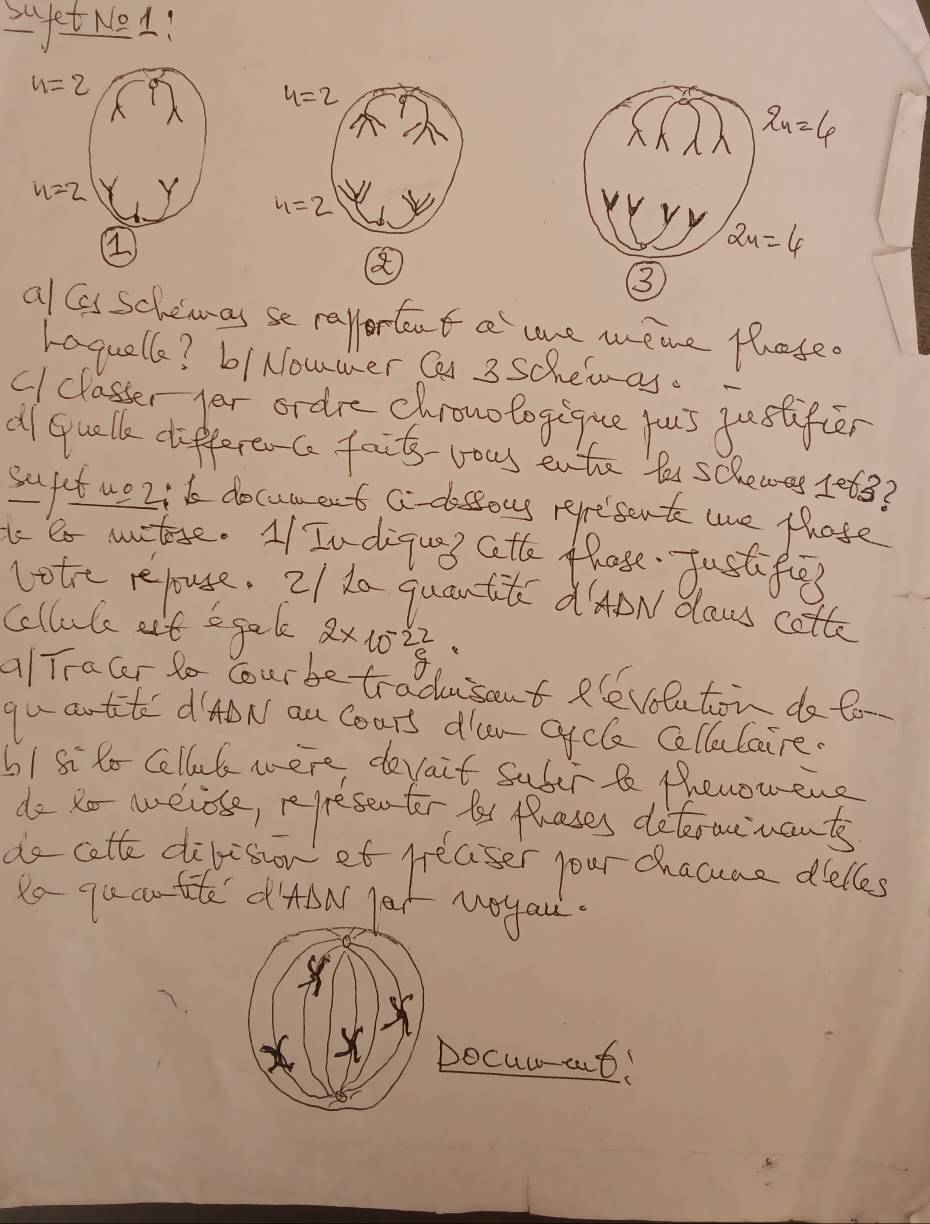 Sujet No 1:
n=2 n=2 2n=4
n=2 n=2 2n=4
1 2 3
a/ Ces schémas se rapportent à une même phase.
Laquelle? b/ Nommer Ces 3 schémas.
c/ classer par ordre chronologique puis justifier
d/ Quelle différence faits-vous entre les schémas 1et3?
Sujet no 2: le document Ci-dessous représente une phase
de la mitose. 1/ Indiquez cette phase. Justifiez
votre réponse. 2/ La quantité d'ADN dans cette
Cellule est égale 2x10-22g.
a/ Tracer la courbe traduisant l'évolution de la
quantité d'ADN au cours d'un cycle cellulaire.
b/ si la cellule mère, devait subir le phénomène
de la méiose, représenter les phases déterminants
de cette division et préciser pour chacune d'elles
la quantité d'ADN par noyau.
Document: